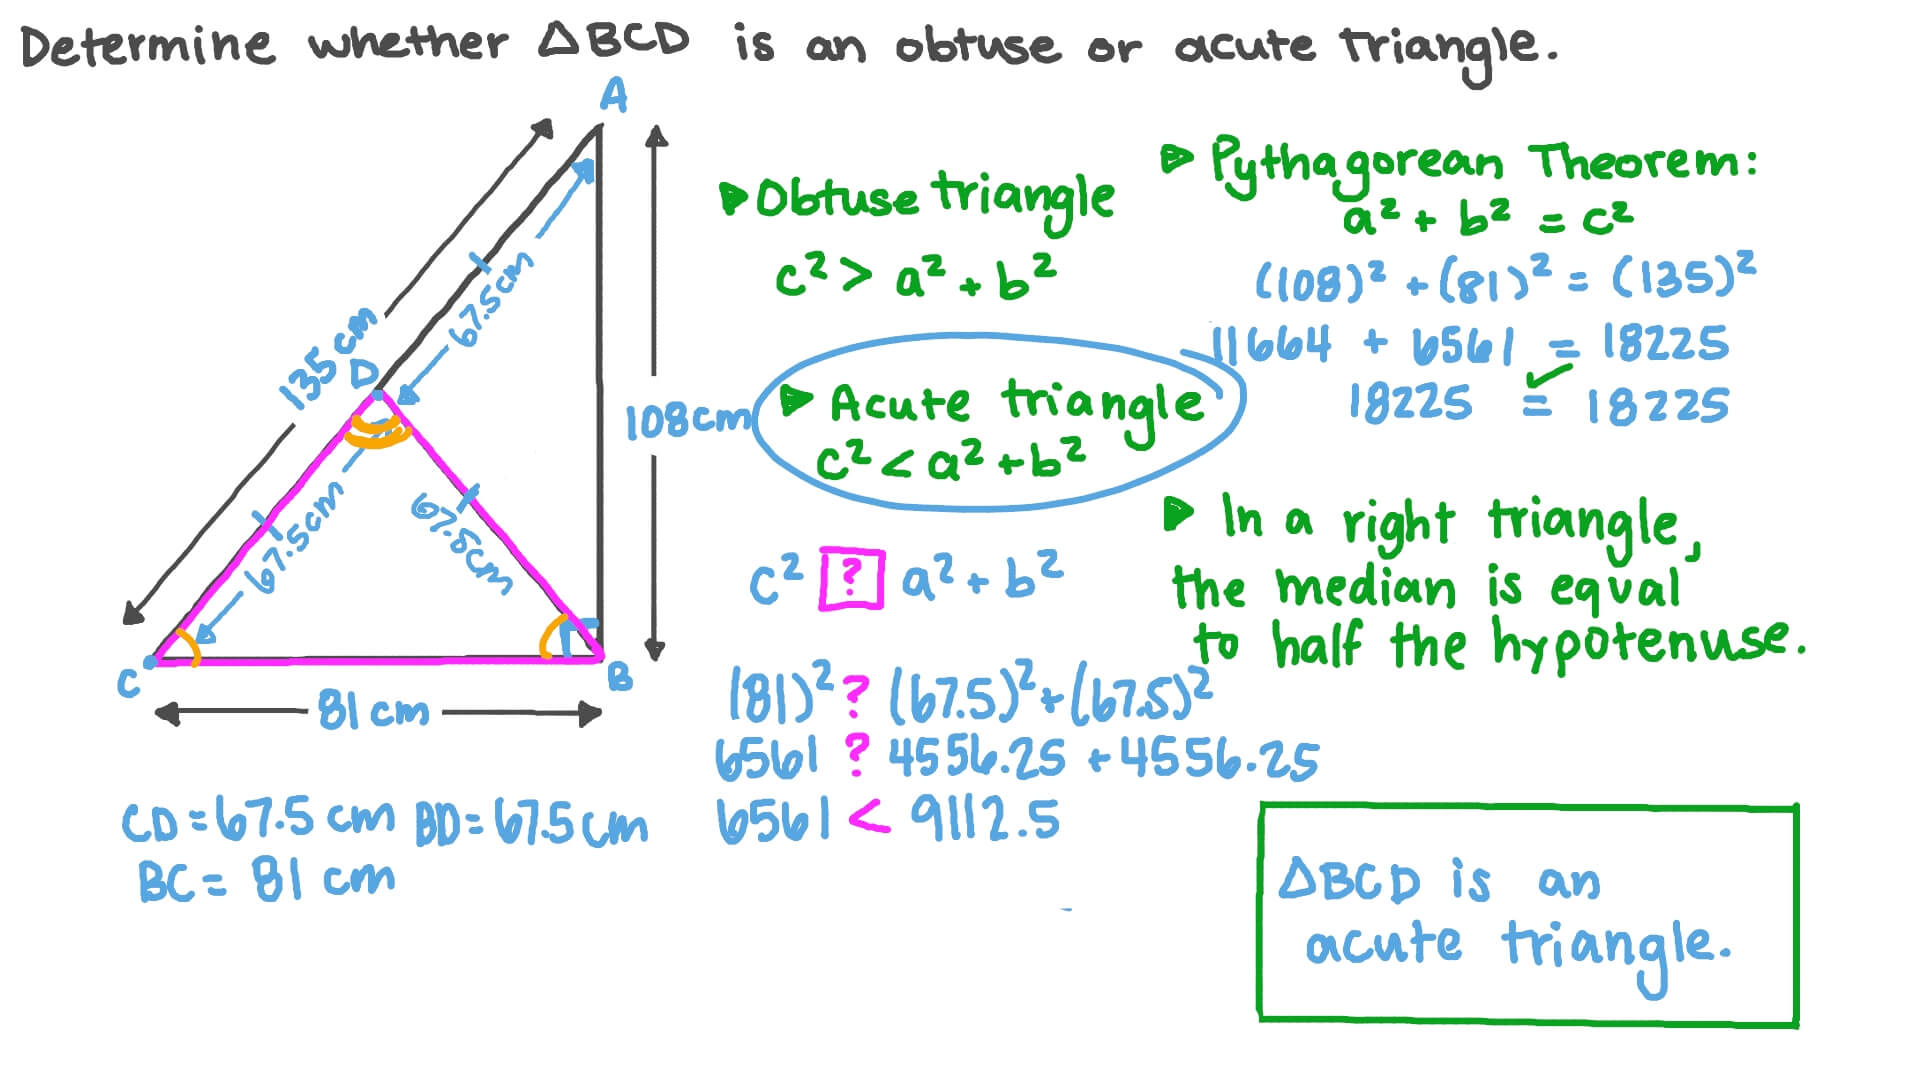 Determine whether △BCD is an obtuse or acute triangle.
A
135 cm
67.5cm
D
108cm
67.5cm
67.5cm
C
B
81 cm
CD = 67.5 cm BD = 67.5 cm
BC = 81 cm
▶ Obtuse triangle
c² > a² + b²
▶ Acute triangle
c² < a² + b²
c² ? a² + b²
(81)² ? (67.5)² + (67.5)²
6561 ? 4556.25 + 4556.25
6561 < 9112.5
▶ Pythagorean Theorem:
a² + b² = c²
(108)² + (81)² = (135)²
11664 + 6561 = 18225
18225 = 18225 ✓
▶ In a right triangle,
the median is equal
to half the hypotenuse.
△BCD is an
acute triangle.